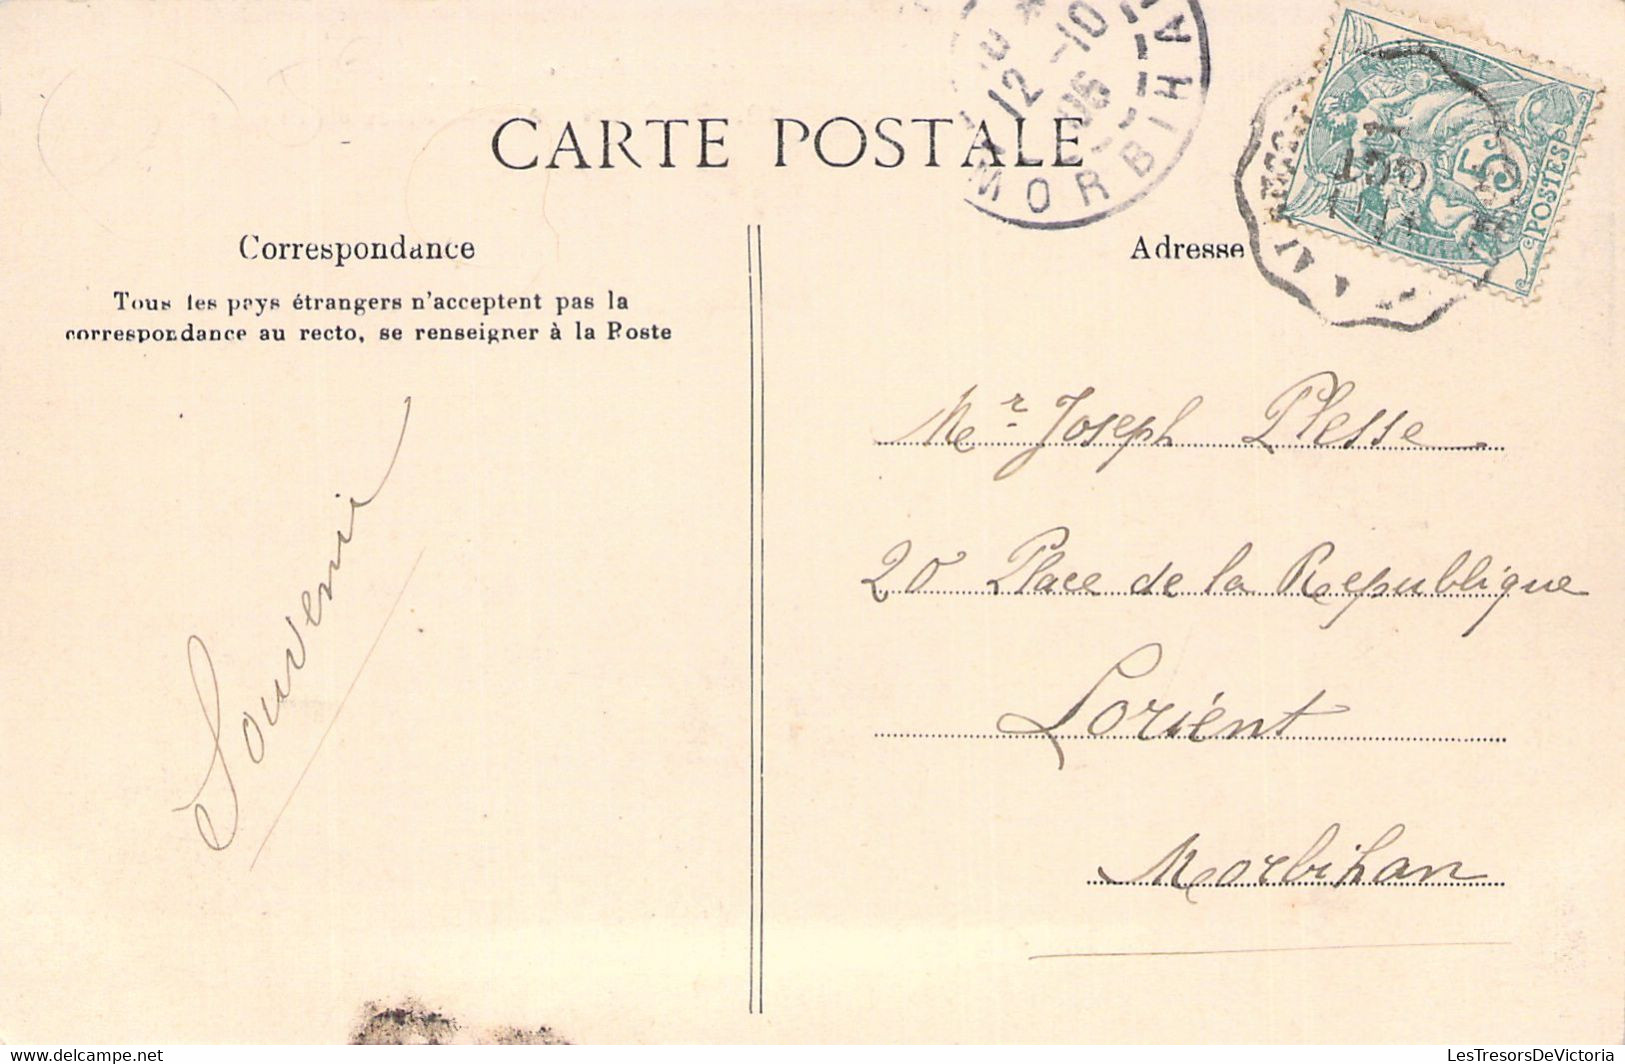 12-10
06
MORBIHA
CARTE POSTALE
5
POSTES
OCT
Correspondance
Adresse
Tous les pays étrangers n'acceptent pas la
correspondance au recto, se renseigner à la Poste
Mr Joseph Plesse
20 Place de la Republique
Lorient
Morbihan
Souvenir
www.delcampe.net
LesTresorsDeVictoria